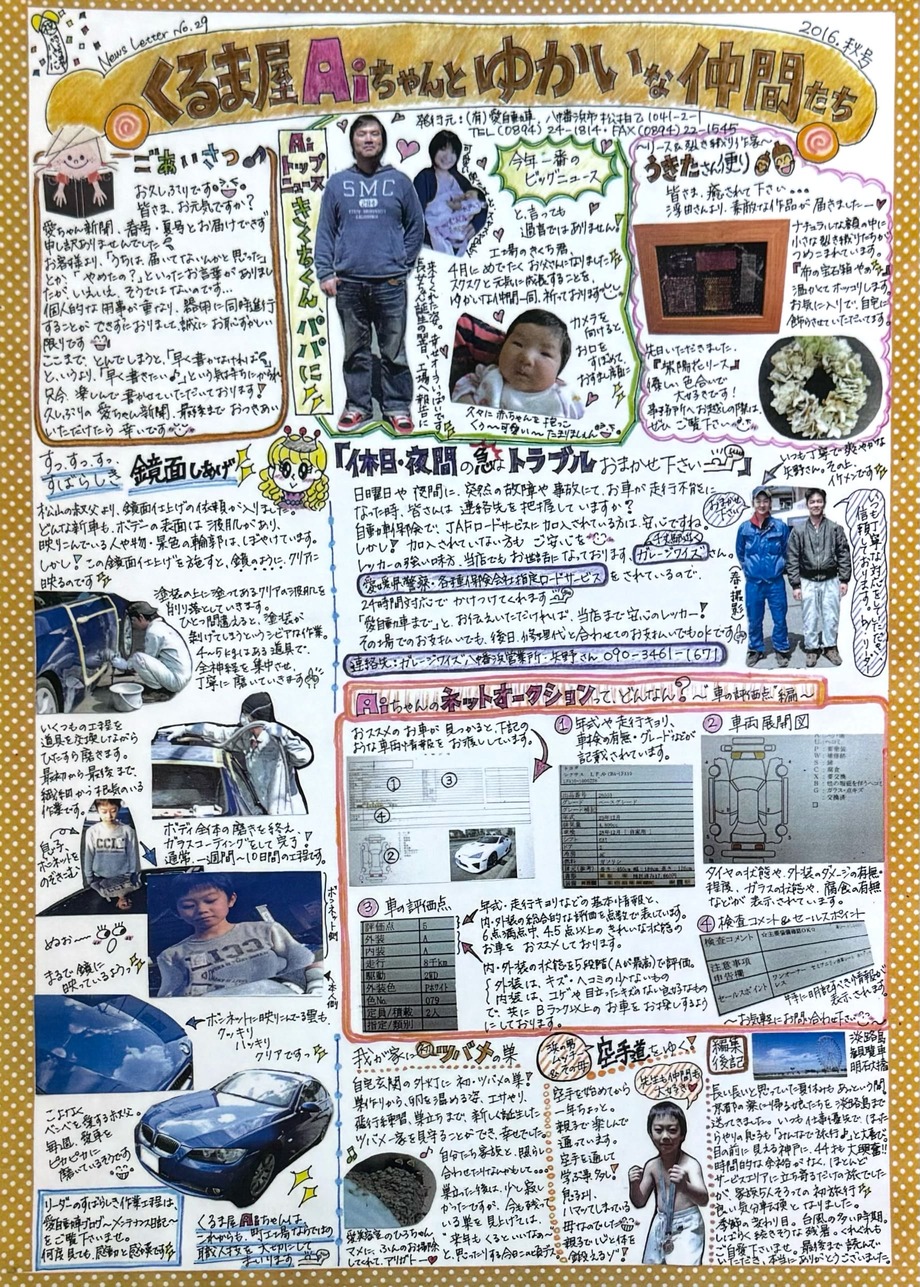 News Letter No.29
2016.秋号
くるま屋Aiちゃんとゆかいな仲間たち
発行元:(有)愛自動車、八幡浜市松柏乙1041-2-1
TEL(0894)24-1814・FAX(0894)22-1545
ごあいさつ♪
お久しぶりです。
皆さま、お元気ですか?
愛ちゃん新聞、春号・夏号とお届けできず
申し訳ありませんでした。
お客様より、「うちは届いてないんかと思った」
とか、「やめたの?」といったお言葉がありまし
たが、いえいえ、そうではないのです…
個人的な用事が重なり、器用に同時進行
することができずにおりまして、誠にお恥ずかしい
限りです
ここまで、とんでしまうと、「早く書かなければ」
というより、「早く書きたい♪」という気持ちにかられ
只今、楽しんで書かせていただいております!
久しぶりの愛ちゃん新聞、最後までおつきあい
いただけたら幸いです
Aiトップニュース
きくちくんパパに
今年一番の
ビッグニュース
と、言っても
過言ではありません!
工場のきくち君、
4月にめでたくお父さんになりました
スクスクと元気に成長することを、
ゆかいな仲間一同、祈っております
カメラを
向けると、
お口を
すぼめて、
おすまし顔に
久々に赤ちゃんを抱っこ
くぅ~可愛い~たまりません
~リース&裂き織り作家~
うきたさん便り
皆さま、癒されて下さい…
浮田さんより、素敵な作品が届きました―♥
ナチュラルな額の中に
小さな裂き織りたちが
つめこまれています。
『布の宝石箱やぁ』
温かくて、ホッコリします。
お気に入りで、自宅に
飾らせていただいてます。
先日いただきました、
『紫陽花リース』
優しい色合いで
大好きです!
事務所へお越しの際は、
ぜひ、ご覧下さい
すっ、すっ、すっ、
すばらしき 鏡面しあげ
松山の叔父より、鏡面仕上げの依頼が入りました。
どんな新車も、ボデーの表面は波肌があり、
映りこんでいる人や物・景色の輪郭は、ぼやけています。
しかし!この鏡面仕上げを施すと、鏡のように、クリアに
映るのです
塗装の上に塗ってあるクリアの波肌を
削り落としていきます。
ひとつ間違えると、塗装が
剥げてしまうというシビアな作業。
4~5kgはある道具で、
全神経を集中させ、
丁寧に磨いていきます
いくつもの工程を
道具を交換しながら
ひたすら磨きます。
最初から最後まで、
繊細かつ根気のいる
作業です。
ボデイ全体の磨きを終え、
ガラスコーディングをして完了!
通常、一週間~10日間の工程です。
息子、
ボンネットを
のぞきこむ
ボンネット側
本人側
ぬぉぉ~
まるで鏡に
映っているよう
ボンネットに映りこんでる雲も、
クッキリ
ハッキリ
クリアですっ
こよなく
ベンベを愛する叔父。
毎週、愛車を
ピカピカに
磨いているそうです
リーダーのすばらしき作業工程は、
愛自動車ブログ~メンテナンス日記~
をご覧下さいませ。
何度見ても、感動と感激です
くるま屋Aiちゃんは、
これからも、町工場ならではの
職人技を大切にして
まいります
『休日・夜間の急なトラブルおまかせ下さい』
日曜日や夜間に、突然の故障や事故にて、お車が走行不能に
なった時、皆さんは連絡先を把握していますか?
自動車保険で、JAFロードサービスに加入されている方は、安心ですね。
しかし!加入されていない方も ご安心を
レッカーの強い味方、当店でもお世話になっております、ガレージワイズさん。
愛媛県警察・各種保険会社指定ロードサービスをされているので、
24時間対応でかけつけてくれます
「愛自動車まで」と、お伝えいただければ、当店まで安心のレッカー!
その場でのお支払いでも、後日、修理代と合わせてのお支払いでもokです
連絡先:ガレージワイズ八幡浜営業所・矢野さん 090-3461-1671
いつも丁寧で爽やかな
矢野さん。その上、
イケメンです
おまかせ
下さい
(春・撮影)
いつも丁寧な対応をして下さり、
信頼しております。byリーダー
Aiちゃんのネットオークションて、どんなん?~車の評価点編~
おススメのお車が見つかると、下記の
ような車両情報をお渡ししています。
① 年式や走行キョリ、
車検の有無・グレードなどが
記載されています。
② 車両展開図
タイヤの状態や、外装のダメージの有無・
程度、ガラスの状態や、腐食の有無
などが表示されています。
③ 車の評価点
評価点 5
外装 A
内装 A
走行 8千km
駆動 2WD
外装色 Pホワイト
色No. 079
定員/積載 2人
指定/類別
年式・走行キョリなどの基本情報と、
内・外装の総合的な評価を点数で表しています。
6点満点中、4.5点以上のきれいな状態の
お車をおススメしております。
内・外装の状態を5段階(Aが最高)で評価。
外装は、キズ・ヘコミの少ないもの
内装は、コゲや目立ったキズのない良好なもの
で、共にBランク以上のお車をお探しするよう
にしております。
④ 検査コメント&セールスポイント
検査コメント ☆主要装備確認OK☆
注意事項
申告欄
セールスポイント
ワンオーナー
車体に明記すべき情報が
表示されます。
~お気軽にお問い合わせ下さい~
我が家に初ツバメの巣
自宅玄関の外灯に、初・ツバメの巣!
巣作りから、卵を温める姿、エサやり、
飛行練習、巣立ちまで、新しく誕生した
ツバメ一家を見守ることができ、幸せでした。
自分たち家族と、照らし
合わせたりなんかもして…
巣立った後は、少し寂し
かったですが、今も残って
いる巣を見上げては、
来年もくるといいな~
と、思ったりする今日この頃です
従業員のひろちゃん、
マメに、ふんのお掃除
してくれて、アリガト―♥
空手道をゆく!
先生も仲間も
大好き♥
空手を始めてから
一年ちょっと。
親子で楽しんで
通っています。
空手を通して
学ぶ事多し!
息子より、
ハマッてしまっている
母なのでした
親子で心と体を
鍛えるゾ!
編集後記
淡路島
観覧車
明石大橋
長い長いと思っていた夏休みも、あっという間。
京都の寮に帰る娘たちを淡路島まで
送ってきました。いつも仕事優先で、ほった
らかしの兄ちも「みんなで旅行♪」と大喜び。
目の前に見える神戸に、44才も大興奮!!
時間的な余裕がなく、ほとんど
サービスエリアに立ち寄るだけの旅でした
が、家族5人そろっての初旅行で、
良い気分転換となりました。
季節の変わり目、台風の多い時期。
しばらく続きそうな残暑。くれぐれも
ご自愛下さいませ。最後まで読んで
いただき、本当にありがとうございました。